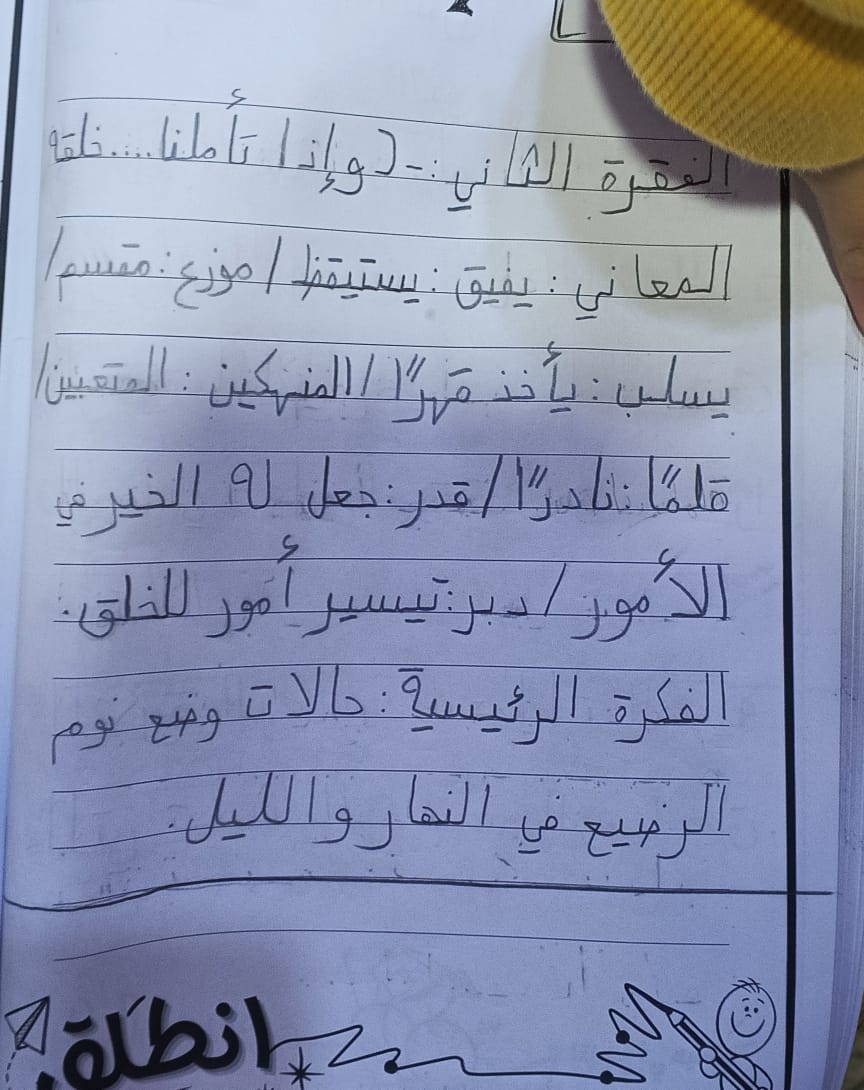 الفقرة الثاني :- (وإذا تأملنا.... خلقه
المعاني : يفيق : يستيقظ / موزع : مقسم /
يسلب : يأخذ قهرًا / المنهكين : المتعبين /
قلمًا : نادرًا / قدر : جعل له الخير في
الأمور / دبر : تيسير أمور للخلق .
الفكرة الرئيسية : حالات وضع نوم
الرضيع في النهار والليل .
انطلاقة